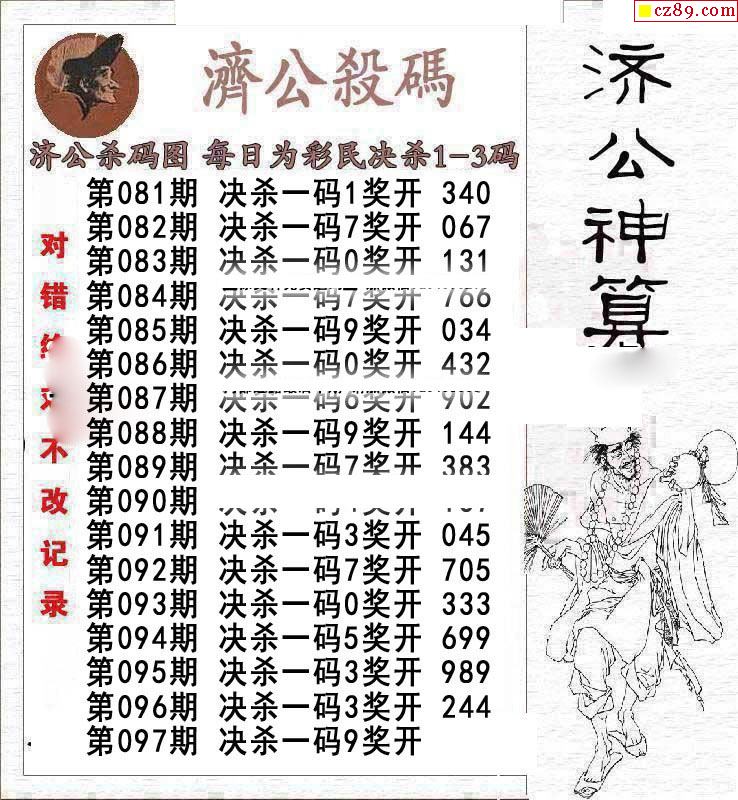 cz89.com
濟公殺碼
济公杀码图 每日为彩民决杀1-3码
第081期 决杀一码1奖开 340
第082期 决杀一码7奖开 067
第083期 决杀一码0奖开 131
第084期 决杀一码7奖开 766
第085期 决杀一码9奖开 034
第086期 决杀一码0奖开 432
第087期 决杀一码6奖开 902
第088期 决杀一码9奖开 144
第089期 决杀一码7奖开 383
第090期
第091期 决杀一码3奖开 045
第092期 决杀一码7奖开 705
第093期 决杀一码0奖开 333
第094期 决杀一码5奖开 699
第095期 决杀一码3奖开 989
第096期 决杀一码3奖开 244
第097期 决杀一码9奖开
对错
不改记录
济公神算